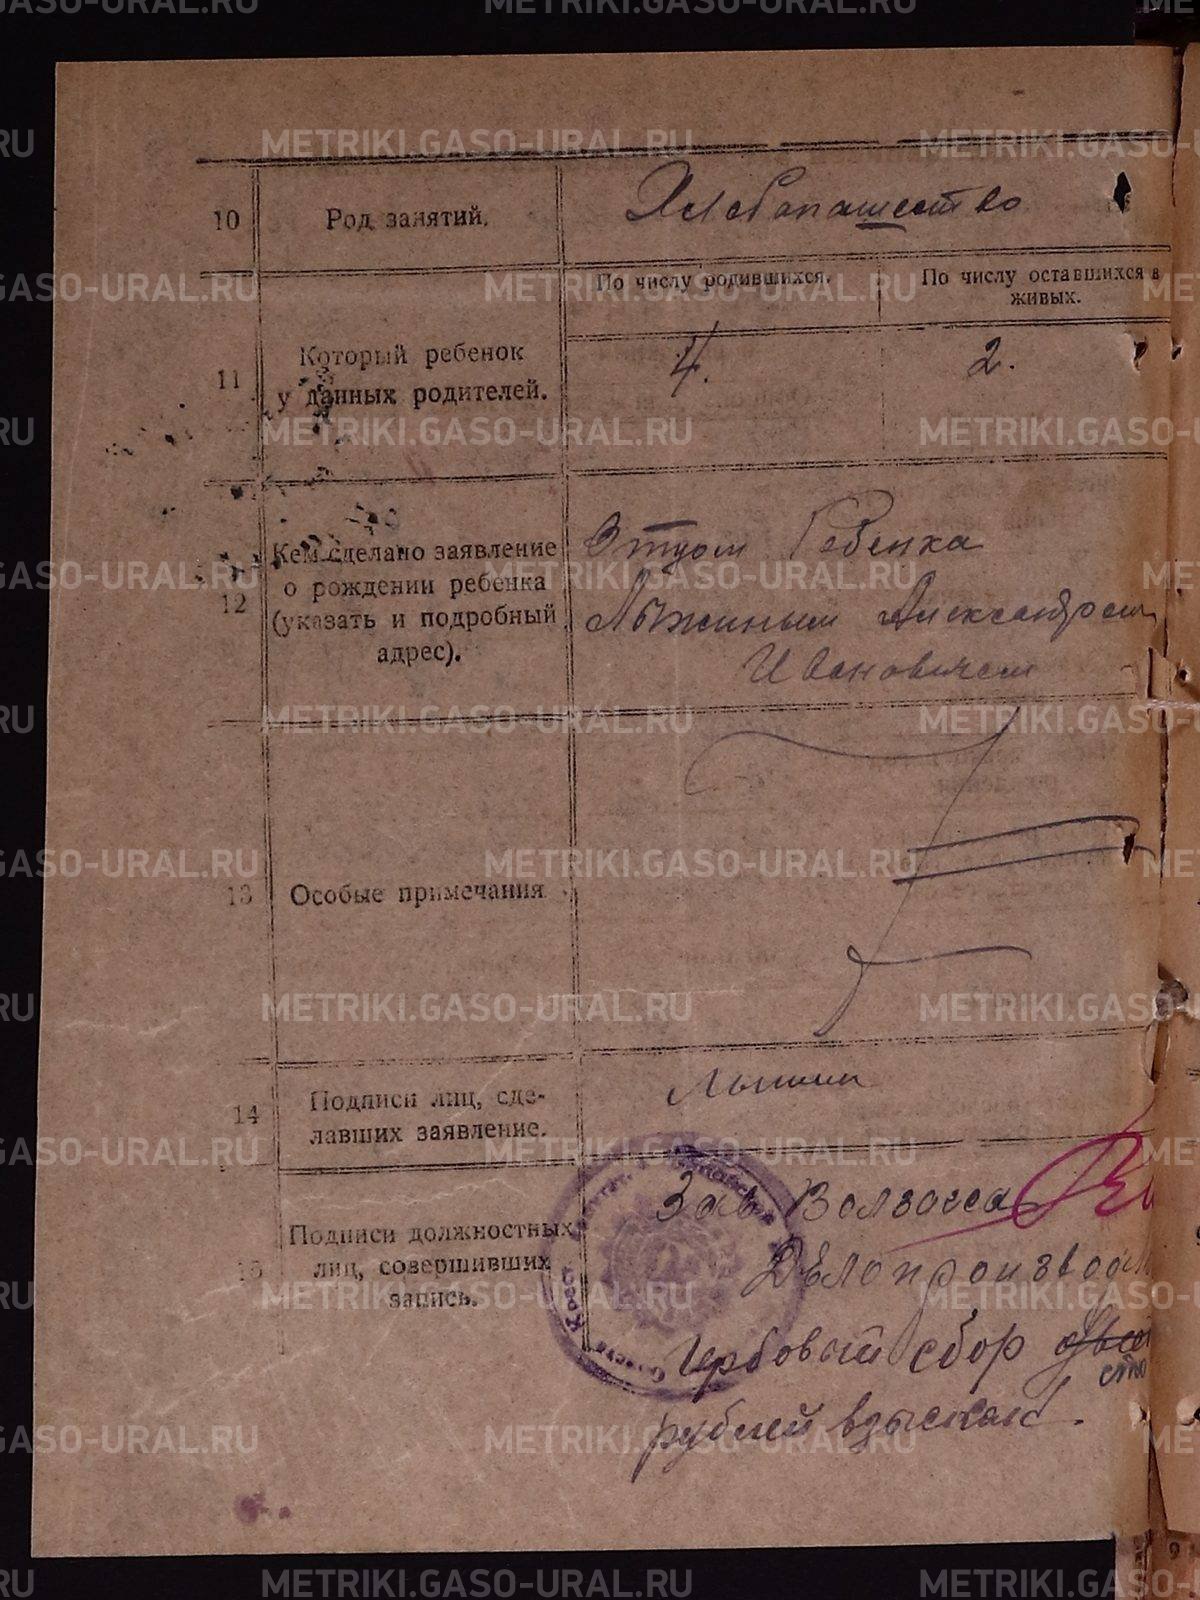 METRIKI.GASO-URAL.RU
10
Род занятий.
Хлебапашество
11
Который ребенок
у данных родителей.
По числу родившихся.
По числу оставшихся в
живых.
4.
2.
12
Кем сделано заявление
о рождении ребенка
(указать и подробный
адрес).
Отцом Ребенка
Лыжиным Александром
Ивановичем
13
Особые примечания
14
Подписи лиц, сде-
лавших заявление.
15
Подписи должностных
лиц, совершивших
запись.
Зав
Делопроизвод
Гербовый сбор
сто
рублей взыскан.